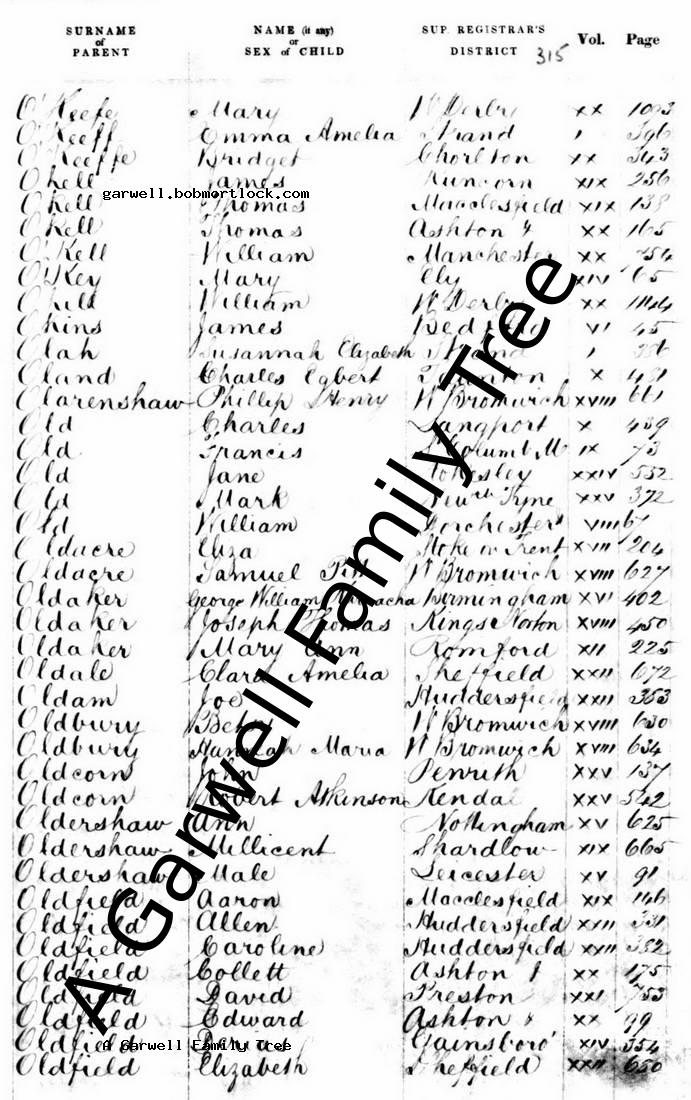 SURNAME of PARENT NAME (if any) or SEX of CHILD SUP. REGISTRAR'S DISTRICT 315 Vol. Page
O'Keefe Mary W Derby XX
O'Keeff Emma Amelia Strand 1 396
O'Keeffe Bridget Chorlton XX 343
Okell James Runcorn XIX 256
garwell.bobmortlock.com
Okell Thomas Macclesfield XIX 138
Okell Thomas Ashton & XX 165
O'Kell William Manchester XX
O'Key Mary Ely XIV 65
Okill William W Derby XX 1144
Okins James Bedford VI 45
Olah Susannah Elizabeth Strand 1 386
Oland Charles Egbert Taunton X 481
Olarenshaw Phillip Henry W Bromwich XVIII 661
Old Charles Langport X 439
Old Francis St Columb M IX 73
Old Jane Stokesley XXIV 552
Old Mark Newc Tyne XXV 372
Old William Dorchester VIII 67
Oldacre Eliza Stoke on Trent XVII 204
Oldacre Samuel W Bromwich XVIII 627
Oldaker George William Birmingham XVI 402
Oldaker Joseph Thomas Kings Norton XVIII 450
Oldaker Mary Ann Romford XII 225
Oldale Clara Amelia Sheffield XXII 672
Oldam Joe Huddersfield XXII 353
Oldbury Betsy W Bromwich XVIII 630
Oldbury Hannah Maria W Bromwich XVIII 634
Oldcorn John Penrith XXV 137
Oldcorn Robert Atkinson Kendal XXV 542
Oldershaw Ann Nottingham XV 625
Oldershaw Millicent Shardlow XIX 665
Oldershaw Male Leicester XV 91
Oldfield Aaron Macclesfield XIX 146
Oldfield Allen Huddersfield XXII 331
Oldfield Caroline Huddersfield XXII 352
Oldfield Collett Ashton & XX 175
Oldfield David Preston XXI 753
Oldfield Edward Ashton & XX 99
Oldfield Gainsboro' XIV 354
A Garwell Family Tree
Oldfield Elizabeth Sheffield XXII 650
A Garwell Family Tree